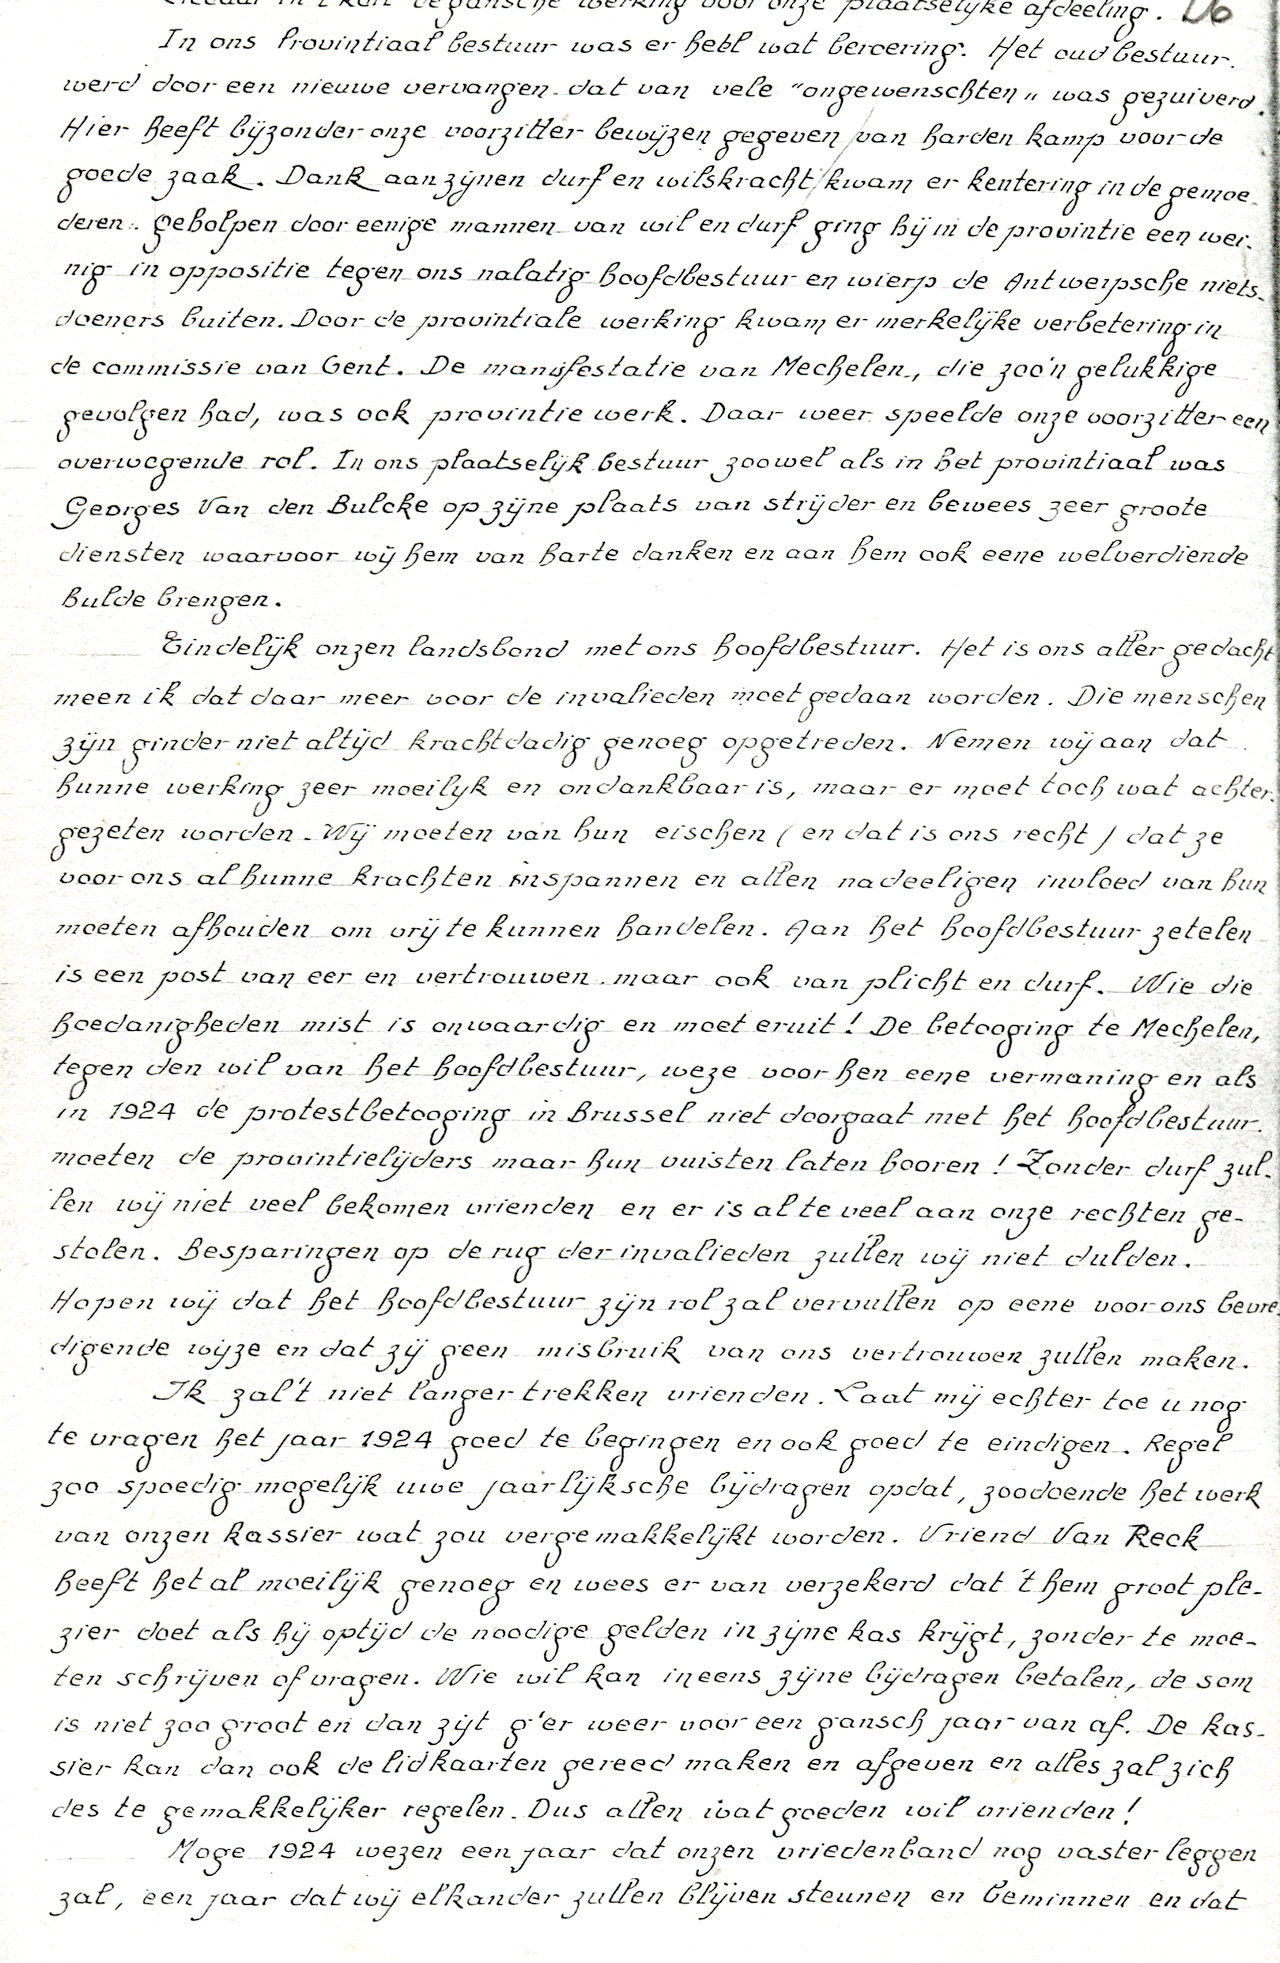 in 't kort de gansche werking voor onze plaatselijke afdeeling. 26
In ons Provintiaal bestuur was er heel wat beroering. Het oud bestuur.
werd door een nieuwe vervangen dat van vele "ongewenschten" was gezuiverd.
Hier heeft bijzonder onze voorzitter bewijzen gegeven van harden kamp voor de
goede zaak. Dank aan zijnen durf en wilskracht kwam er kentering in de gemoe-
deren. geholpen door eenige mannen van wil en durf ging hij in de provintie een wei-
nig in oppositie tegen ons nalatig hoofdbestuur en wierp de Antwerpsche niets-
doeners buiten. Door de provintiale werking kwam er merkelijke verbetering in
de commissie van Gent. De manifestatie van Mechelen, die zoo'n gelukkige
gevolgen had, was ook provintie werk. Daar weer speelde onze voorzitter een
overwegende rol. In ons plaatselijk bestuur zoowel als in het provintiaal was
Georges Van den Bulcke op zijne plaats van strijder en bewees zeer groote
diensten waarvoor wij hem van harte danken en aan hem ook eene welverdiende
hulde brengen.
Eindelijk onzen landsbond met ons hoofdbestuur. Het is ons aller gedacht
meen ik dat daar meer voor de invalieden moet gedaan worden. Die menschen
zijn ginder niet altijd krachtdadig genoeg opgetreden. Nemen wij aan dat
hunne werking zeer moeilijk en ondankbaar is, maar er moet toch wat achter-
gezeten worden. Wij moeten van hun eischen (en dat is ons recht) dat ze
voor ons al hunne krachten inspannen en allen nadeeligen invloed van hun
moeten afhouden om vrij te kunnen handelen. Aan het hoofdbestuur zetelen
is een post van eer en vertrouwen. maar ook van plicht en durf. Wie die
hoedanigheden mist is onwaardig en moet eruit! De betooging te Mechelen,
tegen den wil van het hoofdbestuur, weze voor hen eene vermaning en als
in 1924 de protestbetooging in Brussel niet doorgaat met het hoofdbestuur.
moeten de provintielijders maar hun vuisten laten booren! Zonder durf zul-
len wij niet veel bekomen vrienden en er is al te veel aan onze rechten ge-
stolen. Besparingen op de rug der invalieden zullen wij niet dulden.
Hopen wij dat het hoofdbestuur zijn rol zal vervullen op eene voor ons bevre-
digende wijze en dat zij geen misbruik van ons vertrouwen zullen maken.
Ik zal 't niet langer trekken vrienden. Laat mij echter toe u nog
te vragen het jaar 1924 goed te begingen en ook goed te eindigen. Regel
zoo spoedig mogelijk uwe jaarlijksche bijdragen opdat, zoodoende het werk
van onzen kassier wat zou vergemakkelijkt worden. Vriend Van Reck
heeft het al moeilijk genoeg en wees er van verzekerd dat 't hem groot ple-
zier doet als hij optijd de noodige gelden in zijne kas krijgt, zonder te moe-
ten schrijven of vragen. Wie wil kan ineens zijne bijdragen betalen, de som
is niet zoo groot en dan zijt g'er weer voor een gansch jaar van af. De kas-
sier kan dan ook de lidkaarten gereed maken en afgeven en alles zal zich
des te gemakkelijker regelen. Dus allen wat goeden wil vrienden!
Moge 1924 wezen een jaar dat onzen vriedenband nog vaster leggen
zal, een jaar dat wij elkander zullen blijven steunen en beminnen en dat